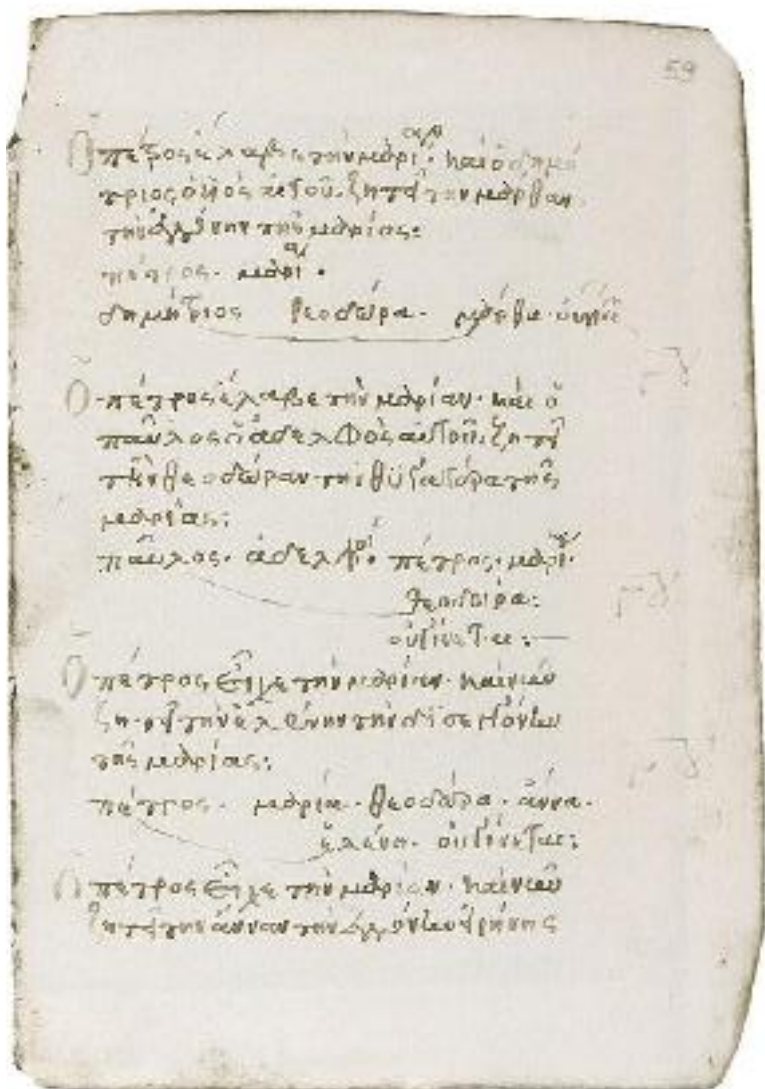 59
Ὁ πέτρος ἔλαβε τὴν μαρί · καὶ ὁ δημή
τριος ὁ υἱὸς αὐτοῦ. ζητεῖ τὴν μάρθαν
τὴν ἐγγόνην τῆς μαρίας:
πέτρος · μαρί ·
δημήτριος θεοδώρα · μάρθα
Ὁ πέτρος ἔλαβε τὴν μαρίαν · καὶ ὁ
παῦλος ὁ ἀδελφὸς αὐτοῦ. ζητεῖ
τὴν θεοδώραν τὴν θυγατέρα τῆς
μαρίας:
παῦλος · ἀδελφοί · πέτρος · μαρί ·
θεοδώρα:
οὐ γίνεται:
Ὁ πέτρος εἶχε τὴν μαρίαν · καὶ νῦν
ζητεῖ τὴν ἑλένην τὴν δισέγγονον
τῆς μαρίας:
πέτρος · μαρία · θεοδώρα · ἄννα ·
ἑλένη · οὐ γίνεται:
Ὁ πέτρος εἶχε τὴν μαρίαν · καὶ νῦν
ζητεῖ τὴν ἄνναν τὴν